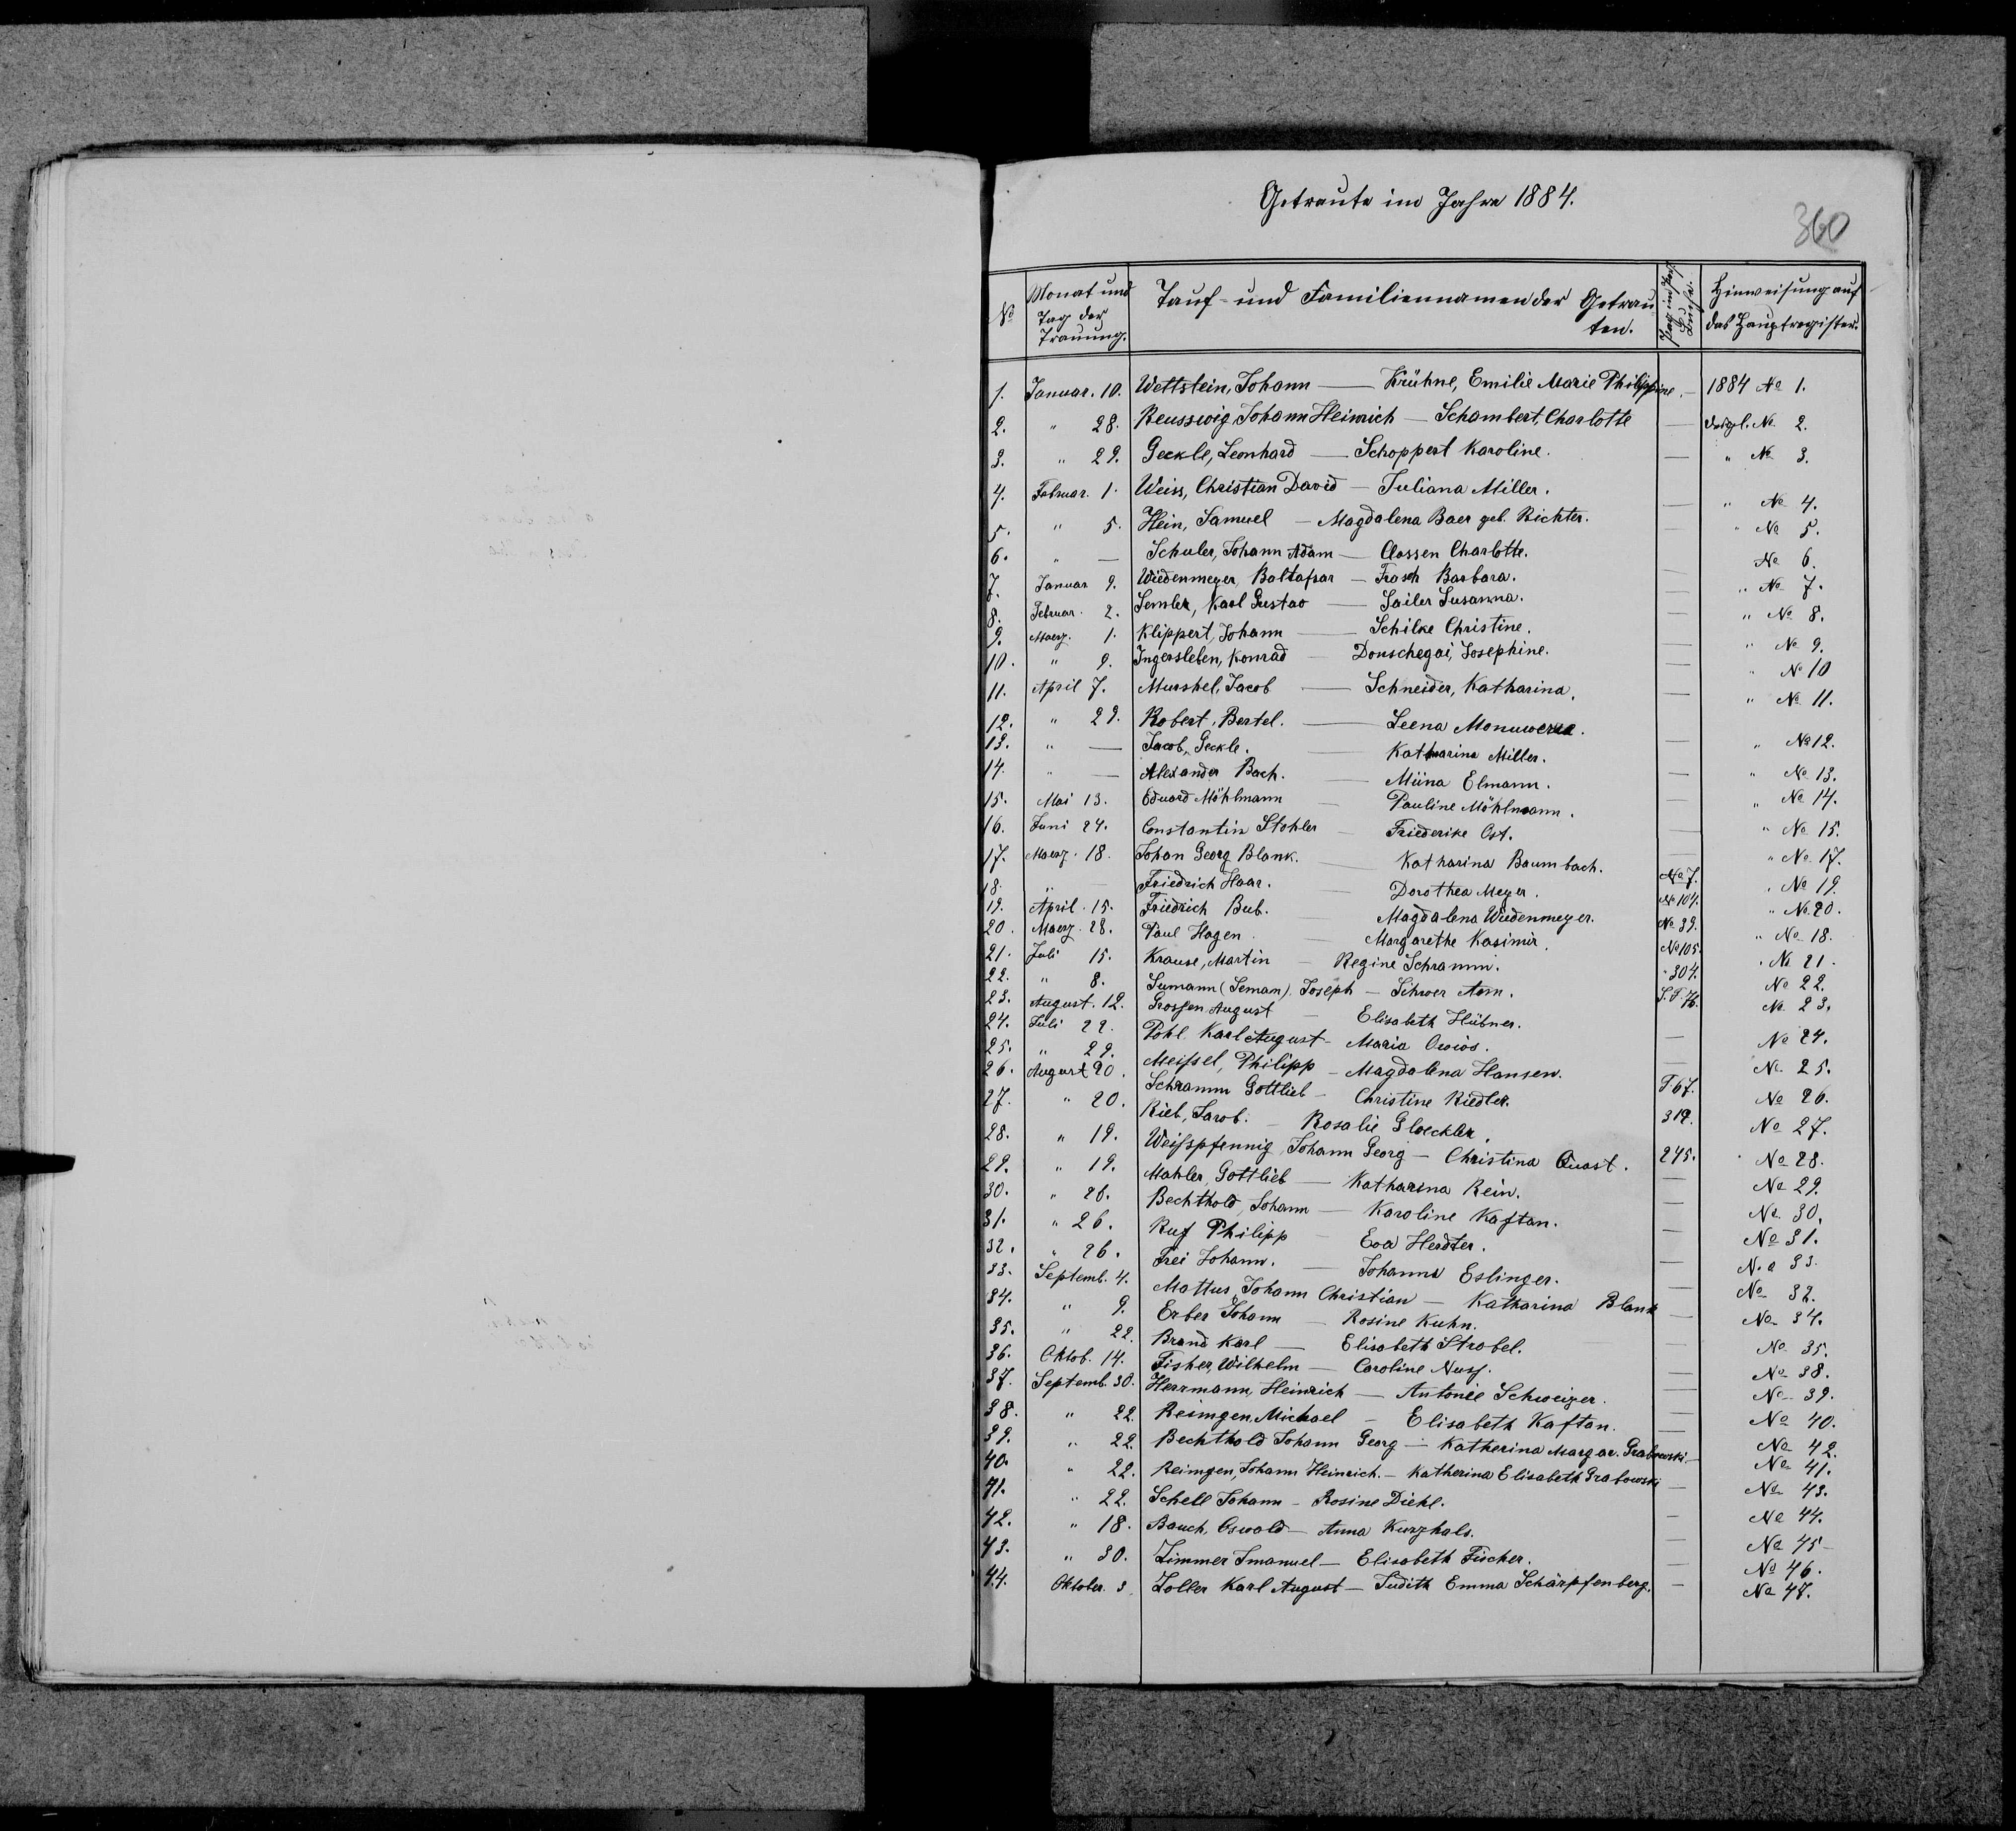 Getraute im Jahre 1884.
360
No
Monat und Tag der Trauung.
Tauf- und Familiennamen der Getrauten.
Hinweisung auf das Hauptregister.
1. Januar. 10. Wettstein, Johann — Krühne, Emilie Marie Philippine. — 1884 No 1.
2. " 28. Reusswig Johann Heinrich — Schambert, Charlotte — desgl. No 2.
3. " 29. Geckle, Leonhard — Schoppert Karoline. — " No 3.
4. Februar. 1. Weiss, Christian David — Juliana Miller. — " No 4.
5. " 5. Hein, Samuel — Magdalena Baer geb. Richter. — " No 5.
6. " — Schuler, Johann Adam — Clossen Charlotte. — No 6.
7. Januar 9. Wiedenmeyer, Baltasar — Frasch Barbara. — " No 7.
8. Februar. 2. Semler, Karl Gustav — Sailer Susanna. — " No 8.
9. Maerz. 1. Klippert, Johann — Schilke Christine. — " No 9.
10. " 9. Ingersleben, Konrad — Donschegai, Josephine. — " No 10
11. April 7. Murshel, Jacob — Schneider, Katharina. — " No 11.
12. " 29. Robert, Bertel. — Leena — " No 12.
13. " — Jacob, Geckle. — Katharina Miller. — " No 13.
14. " — Alexander Bach. — Miina Elmann. — " No 14.
15. Mai 13. Eduard Möhlmann — Pauline Möhlmann. — " No 15.
16. Juni 24. Constantin Stohler — Friederike Ost. — " No 17.
17. Maerz. 18. Johan Georg Blank. — Katharina Baumbach. No 7. " No 19.
18. " — Friedrich Haar. — Dorothea Meyer. No 104. " No 20.
19. April. 15. Friedrich Bub. — Magdalena Wiedenmeyer. No 39. " No 18.
20. Maerz. 28. Paul Hagen. — Margarethe Kasimir. No 105. " No 21.
21. Juli 15. Krause, Martin — Regine Schramm. " 304. No 22.
22. " 8. Sumann (Seman), Joseph — Sihver Ann. S.T. 76. No 23.
23. August. 12. Grossen August — Elisabeth Hübner. — No 24.
24. Juli 22. Pohl Karl August — Maria — No 25.
25. " 29. Meissel, Philipp — Magdalena Hansen. T. 67. No 26.
26. August 20. Schramm Gottlieb — Christine Riedler. 312. No 27.
27. " 20. Rieb, Jacob. — Rosalie Gloeckler. 245. No 28.
28. " 19. Weisspfennig, Johann Georg — Christina Quast. — No 29.
29. " 19. Mahler, Gottlieb — Katharina Rein. — No 30.
30. " 26. Bechthold, Johann — Karoline Kaftan. — No 31.
31. " 26. Ruf Philipp — Eva Herdter. — No 33.
32. " 26. Frei Johann. — Johanna Eslinger. — No 32.
33. Septemb. 4. Mattus, Johann Christian — Katharina Blank — No 34.
34. " 9. Erber Johann — Rosine Kuhn. — No 35.
35. " 22. Brand Karl — Elisabeth Strobel. — No 38.
36. Oktob. 14. Fisher, Wilhelm — Caroline Nuss. — No 39.
37. Septemb. 30. Herrmann, Heinrich — Antonie Schweizer. — No 40.
38. " 22. Reimgen, Michael — Elisabeth Kaftan. — No 42.
39. " 22. Bechthold Johann Georg — Katherina Margar. Grabowski. — No 41.
40. " 22. Reimgen, Johann Heinrich. — Katherina Elisabeth Grabowski — No 43.
41. " 22. Schell Johann — Rosine Diehl. — No 44.
42. " 18. Bauch, Oswald — Anna Kurzhals. — No 45
43. " 30. Zimmer Imanuel — Elisabeth Fischer. — No 46.
44. Oktober. 3. Zoller Karl August — Judith Emma Schärpfenberg. — No 47.